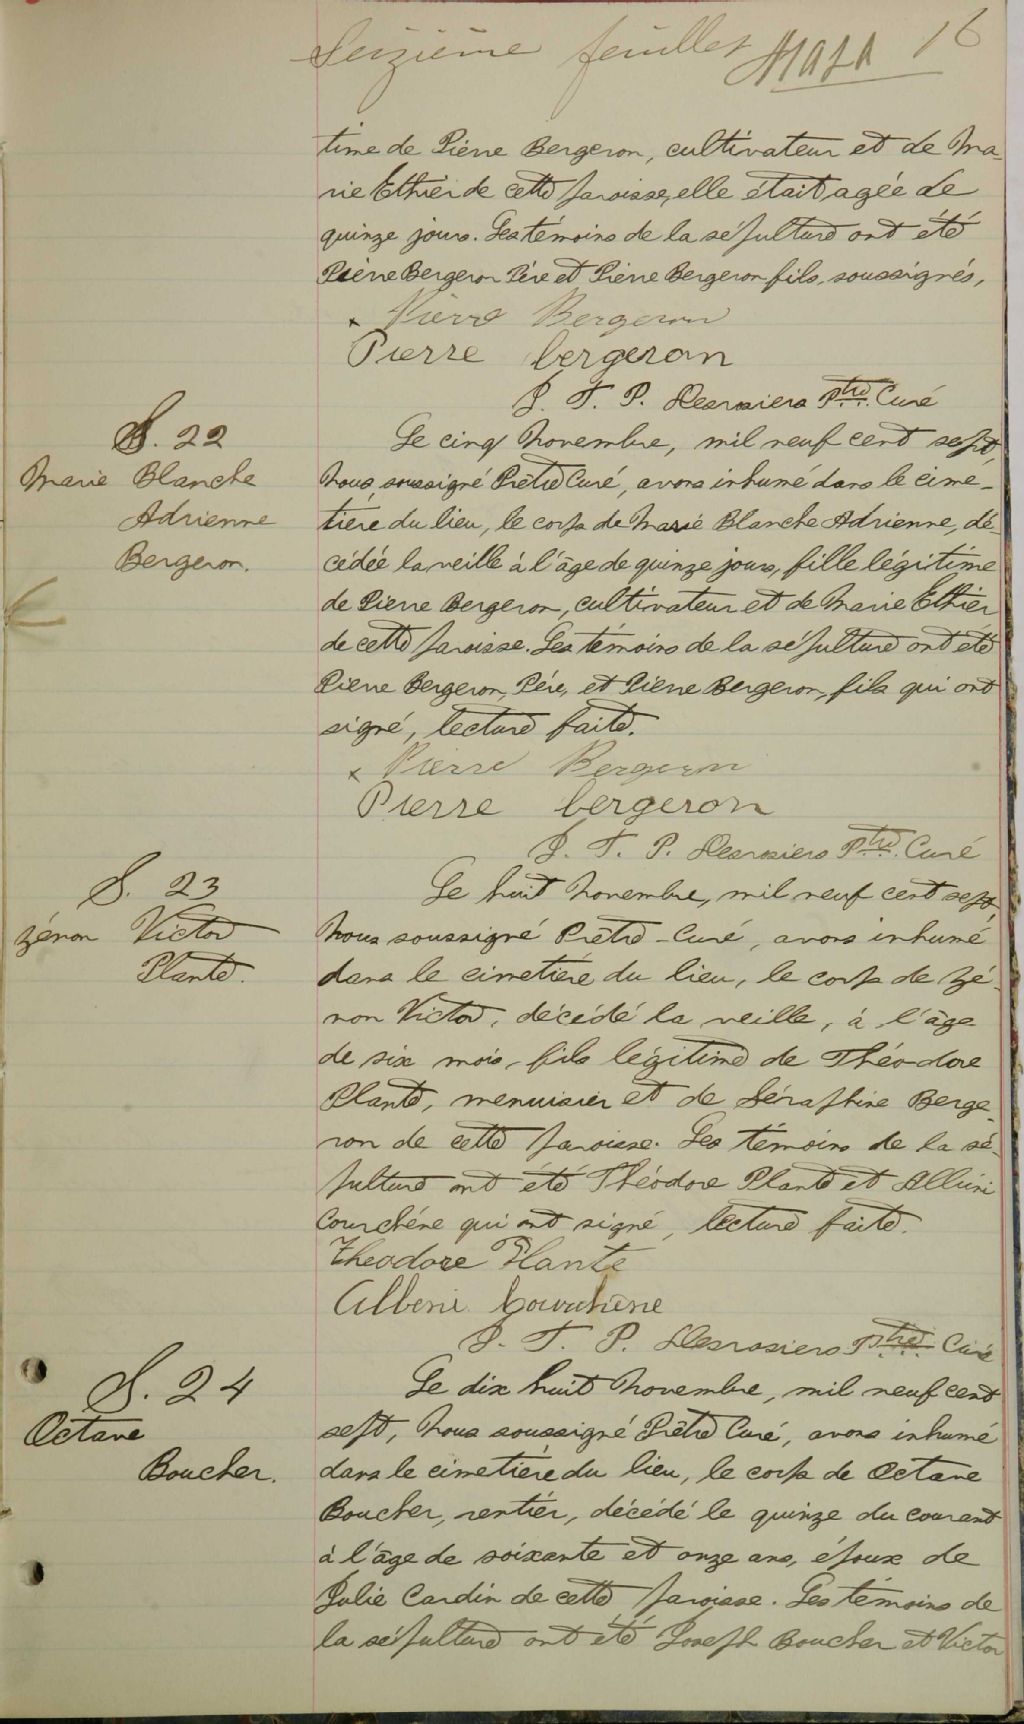 Seizième feuillet 16
time de Pierre Bergeron, cultivateur et de Ma-
rie Ethier de cette paroisse, elle était agée de
quinze jours. Les témoins de la sépulture ont été
Pierre Bergeron Père et Pierre Bergeron fils, soussignés,
x Pierre Bergeron
Pierre bergeron
J. T. P. Desrosiers Ptre. Curé
S. 22
Marie Blanche
Adrienne
Bergeron.
Le cinq Novembre, mil neuf cent sept,
Nous, soussigné Prêtre Curé, avons inhumé dans le cime-
tière du lieu, le corps de Marie Blanche Adrienne, dé-
cédée la veille à l'âge de quinze jours, fille légitime
de Pierre Bergeron, cultivateur et de Marie Ethier
de cette paroisse. Les témoins de la sépulture ont été
Pierre Bergeron, Père, et Pierre Bergeron, fils qui ont
signé, lecture faite.
x Pierre Bergeron
Pierre bergeron
J. T. P. Desrosiers Ptre. Curé
S. 23
Zénon Victor
Plante.
Le huit Novembre, mil neuf cent sept,
Nous soussigné Prêtre-Curé, avons inhumé
dans le cimetière du lieu, le corps de Zé-
non Victor, décédé la veille, à l'âge
de six mois, fils légitime de Théodore
Plante, menuisier et de Séraphine Berge-
ron de cette paroisse. Les témoins de la sé-
pulture ont été Théodore Plante et Albéni
Courchéne qui ont signé, lecture faite.
Theodore Plante
Alberie Courchene
J. T. P. Desrosiers Ptre. Curé
S. 24
Octave
Boucher.
Le dix huit Novembre, mil neuf cent
sept, Nous soussigné Prêtre Curé, avons inhumé
dans le cimetière du lieu, le corps de Octave
Boucher, rentier, décédé le quinze du courant
à l'âge de soixante et onze ans, époux de
Julie Cardin de cette paroisse. Les témoins de
la sépulture ont été Joseph Boucher et Victor